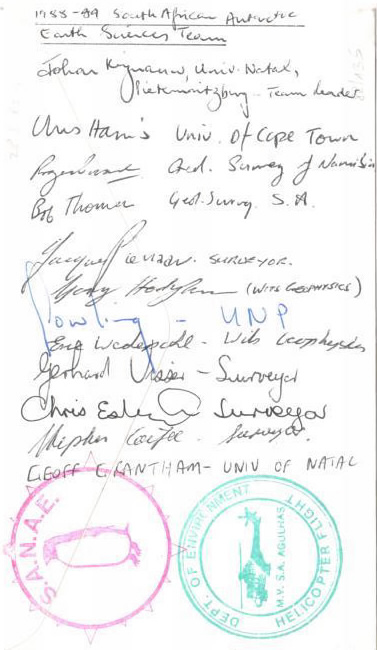 1988-89 South African Antarctic
Earth Sciences Team
Johan Krynauw, Univ. Natal,
Pietermaritzburg - Team Leader
Chris Harris Univ. of Cape Town
Geol. Survey of Namibia
Bob Thomas Geol. Survey. S.A.
Jacques Pienaar. SURVEYOR.
(WITH GEOPHYSICS)
Cowling - UNP
Eric Wits Geophysics
Gerhard Visser - Surveyor
Chris Surveyor
Stephen Surveyor.
GEOFF GRANTHAM - UNIV OF NATAL
S.A.N.A.E.
DEPT. OF ENVIRONMENT
M.V. S.A. AGULHAS
HELICOPTER FLIGHT